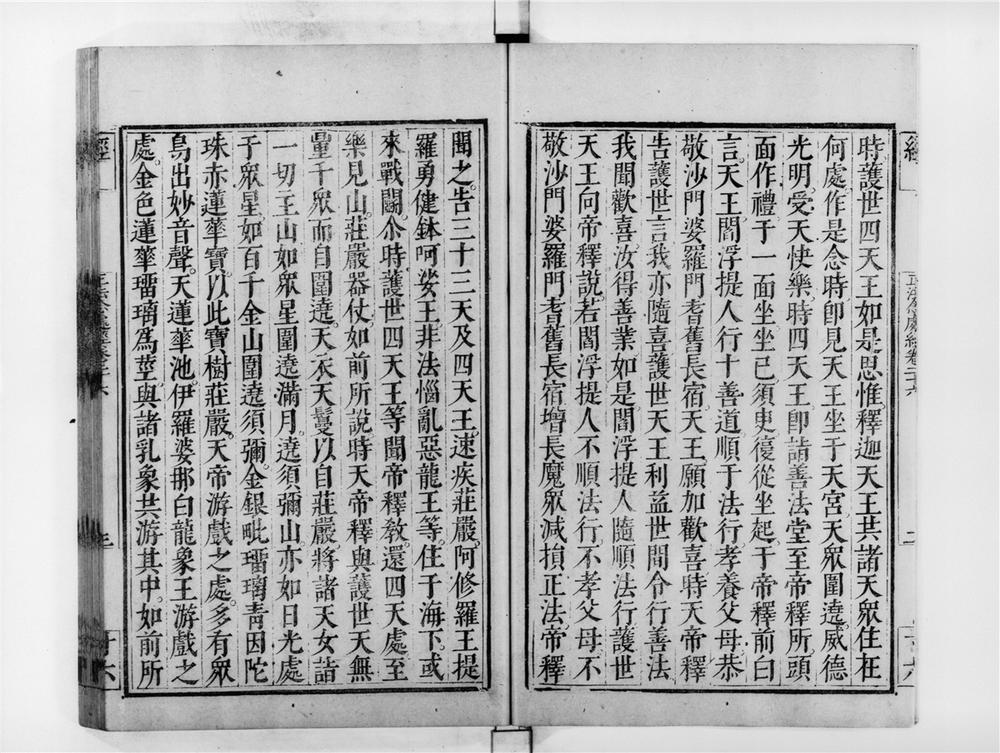 時護世四天王如是思惟釋迦天王共諸天衆住在
何處作是念時卽見天王坐于天宮天衆圍遶威德
光明受天快樂時四天王卽詣善法堂至帝釋所頭
面作禮于一面坐坐已須臾復從坐起于帝釋前白
言天王閻浮提人行十善道順于法行孝養父母恭
敬沙門婆羅門耆舊長宿天王願加歡喜時天帝釋
告護世言我亦隨喜護世天王利益世間令行善法
我聞歡喜汝得善業如是閻浮提人隨順法行護世
天王向帝釋說若閻浮提人不順法行不孝父母不
敬沙門婆羅門耆舊長宿增長魔衆減損正法帝釋
聞之告三十三天及四天王速疾莊嚴阿修羅王提
羅勇健鉢呵娑王非法惱亂惡龍王等住于海下或
來戰鬬尒時護世四天王等聞帝釋教還四天處至
樂見山莊嚴器仗如前所說時天帝釋與護世天無
量千衆而自圍遶天衣天鬘以自莊嚴將諸天女詣
一切王山如衆星圍遶滿月遶須彌山亦如日光處
于衆星如百千金山圍遶須彌金銀毗瑠璃青因陀
珠赤蓮華寶以此寶樹莊嚴天帝游戲之處多有衆
鳥出妙音聲天蓮華池伊羅婆那白龍象王游戲之
處金色蓮華瑠璃爲莖與諸乳象共游其中如前所